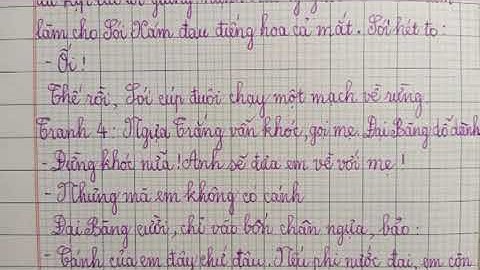 làm cho Sói Xám đau điếng hoa cả mắt. Sói hét to:
- Ối!
Thế rồi, Sói cúp đuôi chạy một mạch về rừng
Tranh 4: Ngựa Trắng vẫn khóc, gọi mẹ. Đại Bàng dỗ dành
- Đừng khóc nữa! Anh sẽ đưa em về với mẹ!
- Nhưng mà em không có cánh
Đại Bàng cười, chỉ vào bốn chân ngựa, bảo:
- Cánh của em đây chứ đâu. Nếu phi nước đại, em còn